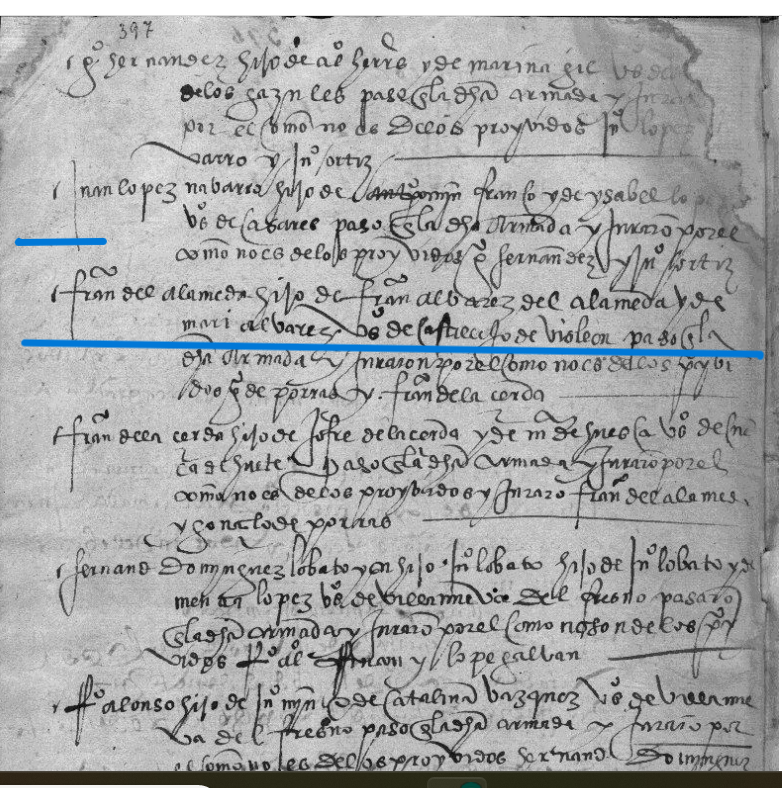 397
hernandez hijo de al° herrs y de marina gil v°s de
de los paso en la dha armada y juraro
por el como no es de los proyvidos Ju° lopez
navarro y Ju° ortiz
Juan lopez navarro hijo de fran^co y de ysabel lopez
v°s de casares paso en la dha armada y juraro por el
como no es de los proyvidos p° fernandez y Ju° hortiz
fran del alameda hijo de fran alvarez del alameda y de
mari alvarez v°s de castrecijo de paso en la
dha armada y juraron por el como no es de los proyvi
dos g° de porras y fran de la cerda
fran de la cerda hijo de jofre de la cerda y de m^a de huesca v°s de cuē
ca de huete paso en la dha armada y juraro por el
como no es de los proyvidos y juraro fran del alame
y gonçalo de porras
Fernand Dominguez lobato y su hijo Ju° lobato hijo de Ju° lobato y de
lopez v°s de villanueva del fresno pasaro
en la dha armada y juraro por el como no son de los pry
vidos f° al° y lope galvan
f° alonso hijo de Ju° mñ y de catalina vazquez v°s de villanue
va del fresno paso en la dha armada y juraro por
el como no es de los proyvidos hernand Dominguez